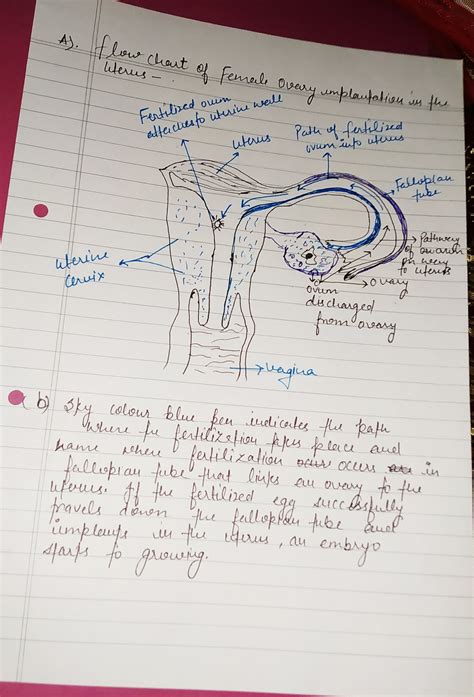 A). Flow chart of Female Ovary implantation in the
Uterus –.
Fertilized ovum
attaches to uterine wall
Uterus
Path of fertilized
ovum into uterus
Falloplan
tube
Pathway
of
on
to uterus
Ovary
Ovum
discharged
from ovary
Uterine
Cervix
Vagina
b) Sky colour blue pen indicates the path
where the fertilization takes place and
name where fertilization occurs in
fallopian tube that links an ovary to the
uterus. If the fertilized egg successfully
travels down the fallopian tube and
implants in the uterus, an embryo
starts to growing.